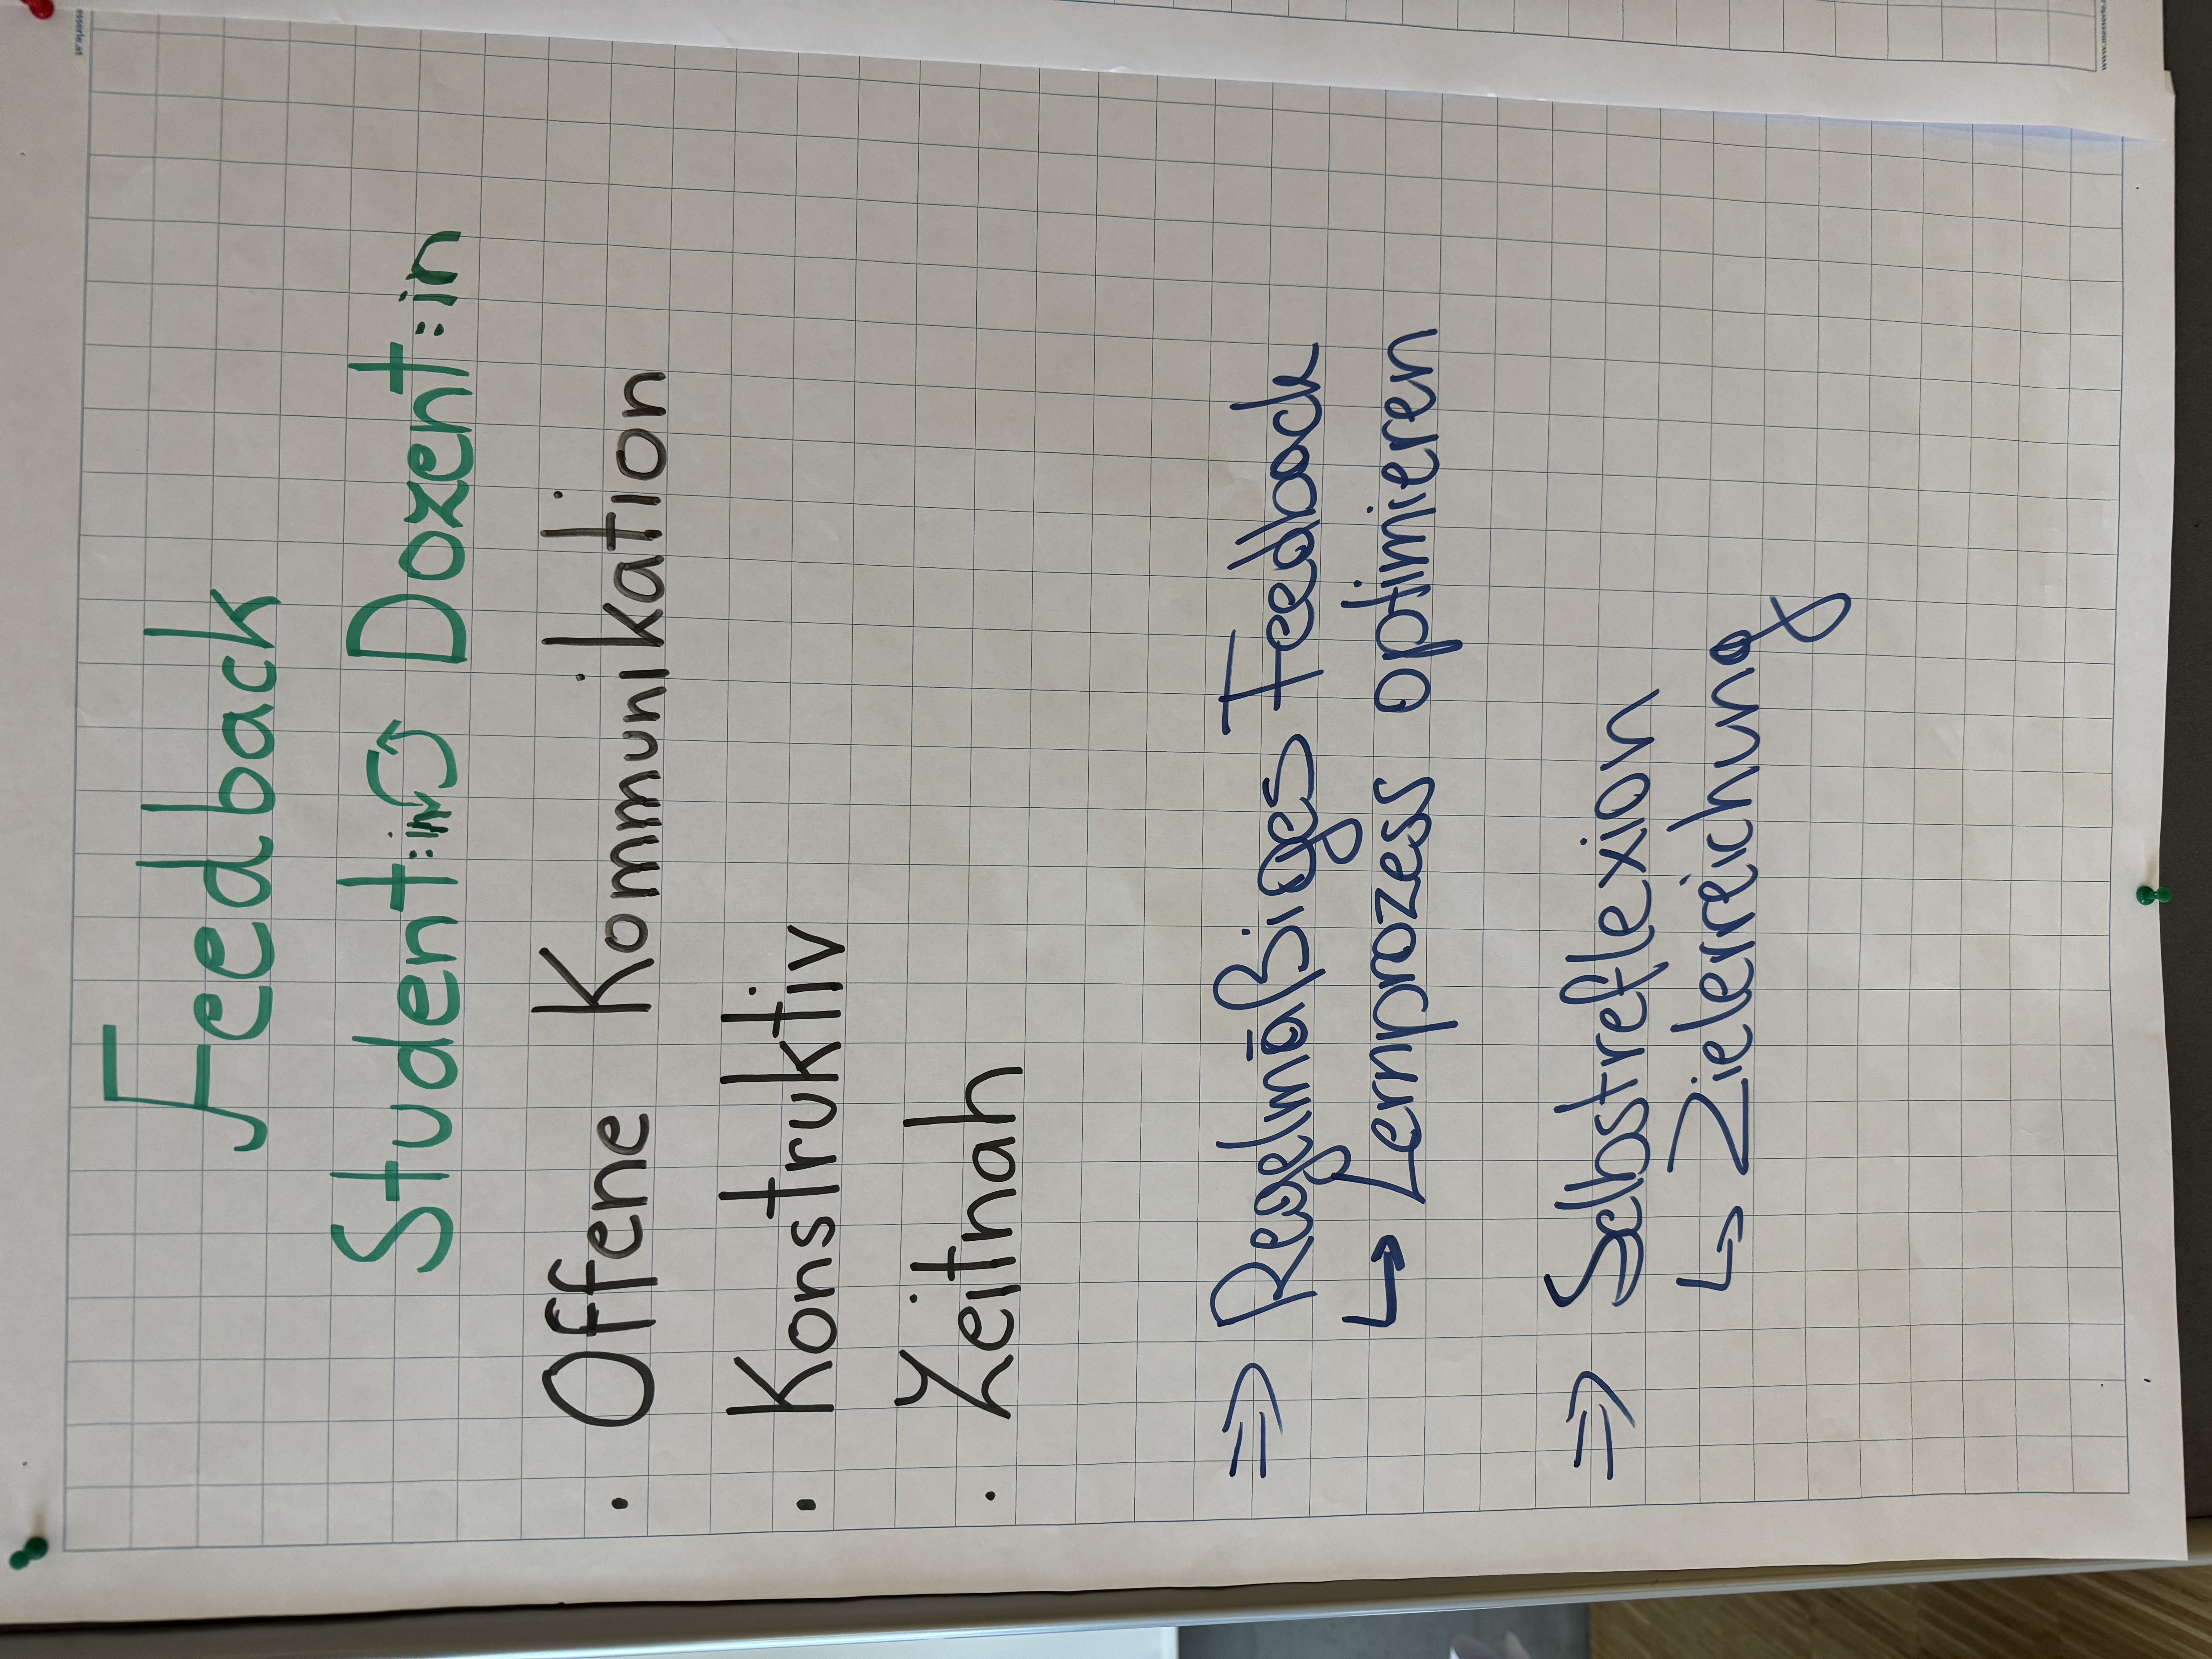 Feedback
Student:in ⤸⤴ Dozent:in
· Offene Kommunikation
· Konstruktiv
· Zeitnah
⇒ Regelmäßiges Feedback
↳ Lernprozess optimieren
⇒ Selbstreflexion
↳ Zielerreichung